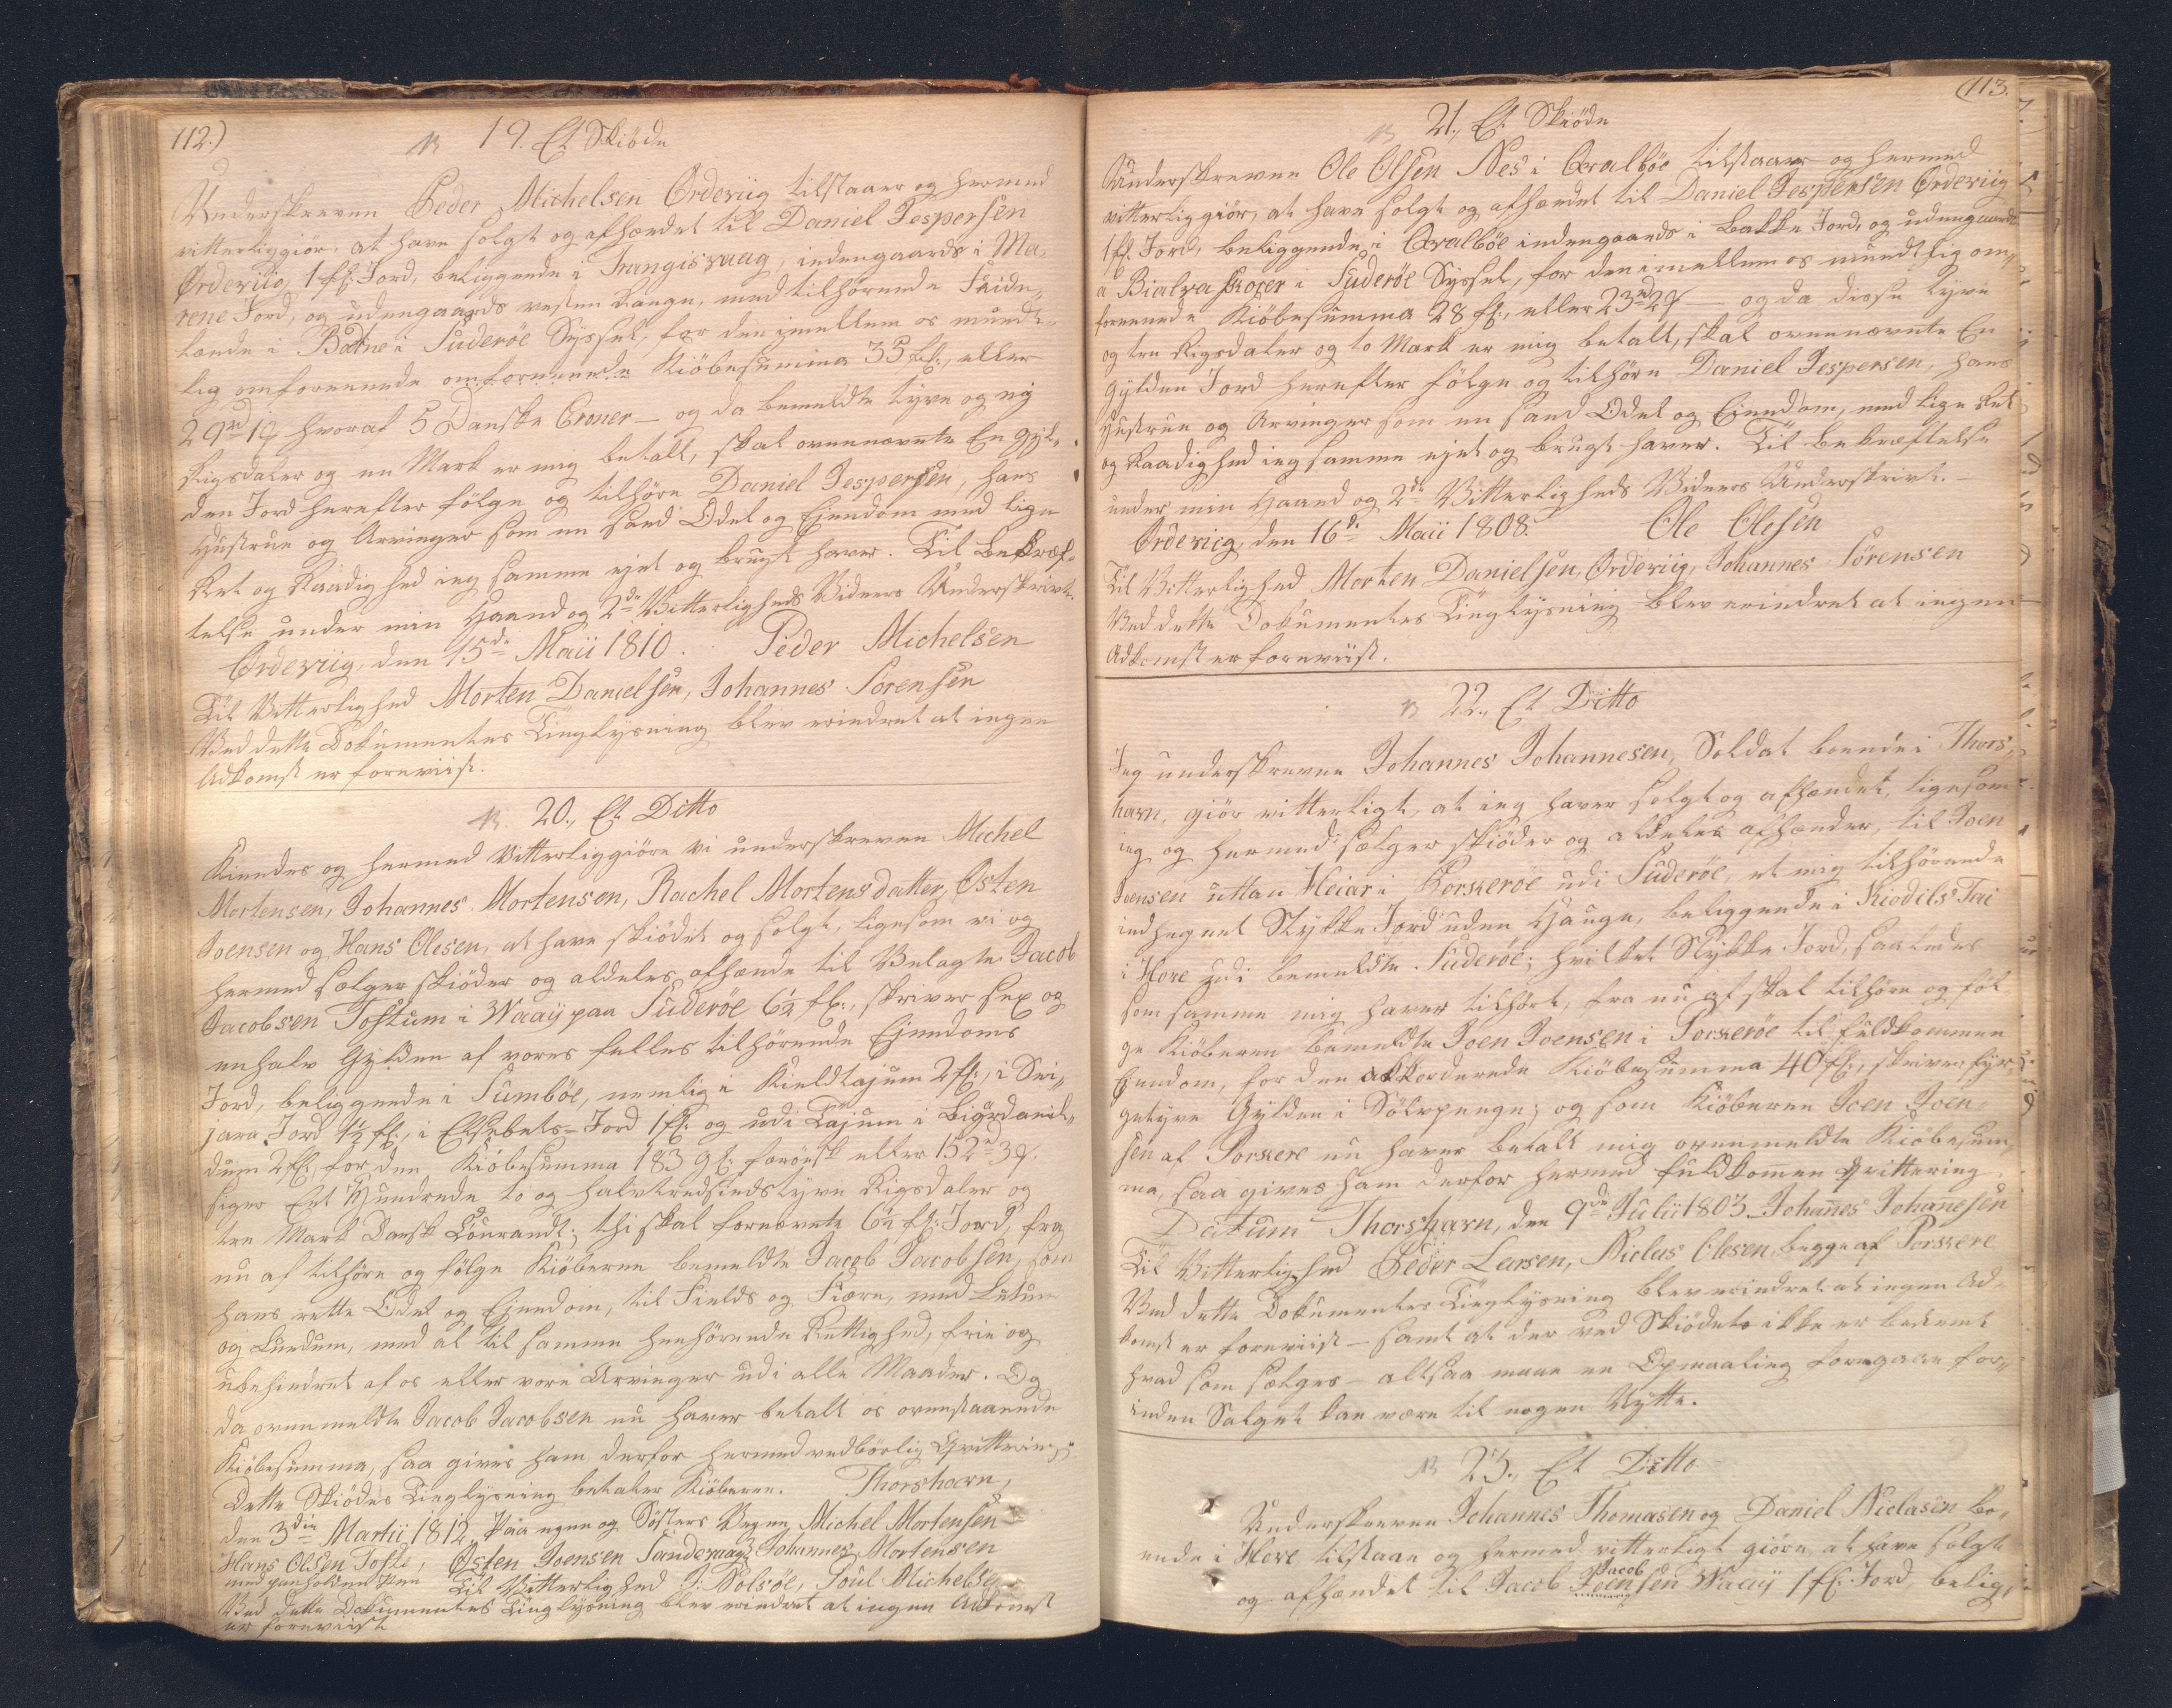 112.)
19. Et Skiöde
Underskreven Peder Michelsen Ørdeviig tilstaaer og hermed
vitterliggiör, at have solgt og afhændet til Daniel Jespersen
Ørdeviig 1 fl: Jord, beliggende i Trangisvaag, indengaards i Ma„
rene Jord, og udengaards vesten Aaen, med tilhörende
lænde i Botne i Suderöe Syssel, for den imellem os mundt„
lig omforenende omforenende Kiöbesumma 35 fl:, eller
29rd 1# hvoraf 5 Danske Croner – og da bemeldte tyve og nij
Rigsdaler og en Mark er mig betalt, skal ovennævnte En Gyl„
den Jord herefter fölge og tilhöre Daniel Jespersen, hans
Hustrue og Arvinger som en sand Odel og Ejendom med lige
Ret og Raadighed ieg samme ejet og brugt haver. Til Bekræf„
telse under min Haand og 2de Vitterligheds Vidners Underskrivt.
Ørdeviig, den 15de Maii 1810. Peder Michelsen
Til Vitterlighed Morten Danielsen, Johannes Sörensen
Ved dette Dokumentes Tinglysning blev erindret at ingen
Adkomst er foreviist.
20., Et Ditto
Kiendes og hermed Vitterliggiöre vi underskreven Michel
Mortensen, Johannes Mortensen, Rachel Mortensdatter, Østen
Joensen og Hans Olesen, at have skiödet og solgt, ligesom vi og
hermed sælger skiöder og aldeles afhænde til Velagte Jacob
Jacobsen Toftum i Waaij paa Suderöe 6½ fl:, skriver sex og
enhalv Gylden af vores fælles tilhörende Ejendoms
Jord, beliggende i Sumböe, nemlig i Kieldtajum 2 fl:, i Svi„
jara Jord 1½ fl:, i Elsebets-Jord 1 fl: og udi Tajum i
dum 2 fl:, for den Kiöbesumma 183 gl: færöisk eller 152rd 3#.
siger Eet Hundrede to og halvtredsindstyve Rigsdaler og
tre Mark Dansk Courandt; thi skal fornævnte 6½ fl: Jord, fra
nu af tilhöre og fölge Kiöberen bemeldte Jacob Jacobsen, som
hans rette Odel og Ejendom, til Fields og Fiære, med Lutum
og Lundum, med al til samme henhörende Rettighed, frie og
ubehindret af os eller vore Arvinger udi alle Maader. Og
da ovenmeldte Jacob Jacobsen nu haver betalt os ovenstaaende
Kiöbesumma, saa gives ham derfor hermed vedbörlig Qvittering
Dette Skiödes Tinglysning betaler Kiöberen. Thorshavn,
den 3die Martii 1812, Paa egne og Söster Vegne, Michel Mortensen
Hans Olsen Tofte, Østen Joensen Sandvaag, Johannes Mortensen
med paaholden Pen Til Vitterlighed J: Solsöe, Poul Michelsen
Ved dette Dokumentes Tinglysning blev erindret at ingen Adkomst
er foreviist
(113.
21., Et Skiöde
Underskreven Ole Olsen Nes i Qvalböe tilstaaer og hermed
vitterliggiör, at have solgt og afhændet til Daniel Jespersen Ørdeviig
1 fl. Jord, beliggende i Qvalböe indengaards i Bakke Jord, og udengaards
a i Suderöe Syssel, for den imellem os mundtlig om„
forenende Kiöbesumma 28 fl:, eller 23rd 2# – og da disse tyve
og tre Rigsdaler og to Mark er mig betalt, skal ovennævnte En
Gylden Jord herefter fölge og tilhöre Daniel Jespersen, hans
Hustrue og Arvinger som en sand Odel og Ejendom, med lige Ret
og Raadighed ieg samme ejet og brugt haver. Til Bekræftelse
under min Haand og 2de Vitterligheds Vidners Underskrivt. –
Ørdeviig, den 16de Maii 1808. Ole Olesen
Til Vitterlighed Morten Danielsen, Ørdeviig, Johannes Sörensen
Ved dette Dokumentes Tinglysning blev erindret at ingen
Adkomst er foreviist.
22., Et Ditto
Jeg underskrevne Johannes Johannesen, Soldat boende i Thors„
havn, giör vitterligt, at ieg haver solgt og afhændet, ligesom
ieg og hermed sælger skiöder og aldeles afhænder, til Joen
Joensen uttan Heiar i Porkeröe udi Suderöe, et mig tilhörende
indhegnet Stykke Jord uden Hauge, beliggende i Kiodils Tai
i Hove udi bemeldte Suderöe; hvilket Stykke Jord, saaledes
som samme mig haver tilhört, fra nu af skal tilhöre og föl
ge Kiöberen bemeldte Joen Joensen i Porkeröe til fuldkommen
Ejendom, for den akkorderede Kiöbesumma 40 fl:, skriver fyr„
getyve Gylden i Sölvpenge; og som Kiöberen Joen Joen„
sen af Porkere nu haver betalt mig ovenmeldte Kiöbesum„
ma, saa gives ham derfor hermed fuldkomen Qvittering
Datum Thorshavn, den 9de Julii 1803. Johanes Johanesen
Til Vitterlighed Peder Larsen, Niclas Olesen, begge af Porkere
Ved dette Dokumentes Tinglysning blev erindret at ingen Ad„
komst er foreviist – samt at der ved Skiödet ikke er bestemt
hvad som sælges – altsaa maae en Opmaaling foregaae for„
inden Salget kan være til nogen Nytte.
23., Et Ditto
Underskrevne Johannes Thomasen og Daniel Neclasen bo„
ende i Hove tilstaae og hermed vitterligt giöre at have solgt
Jacob
og afhændet til Jacob Joensen Waaij 1 fl: Jord, belig„